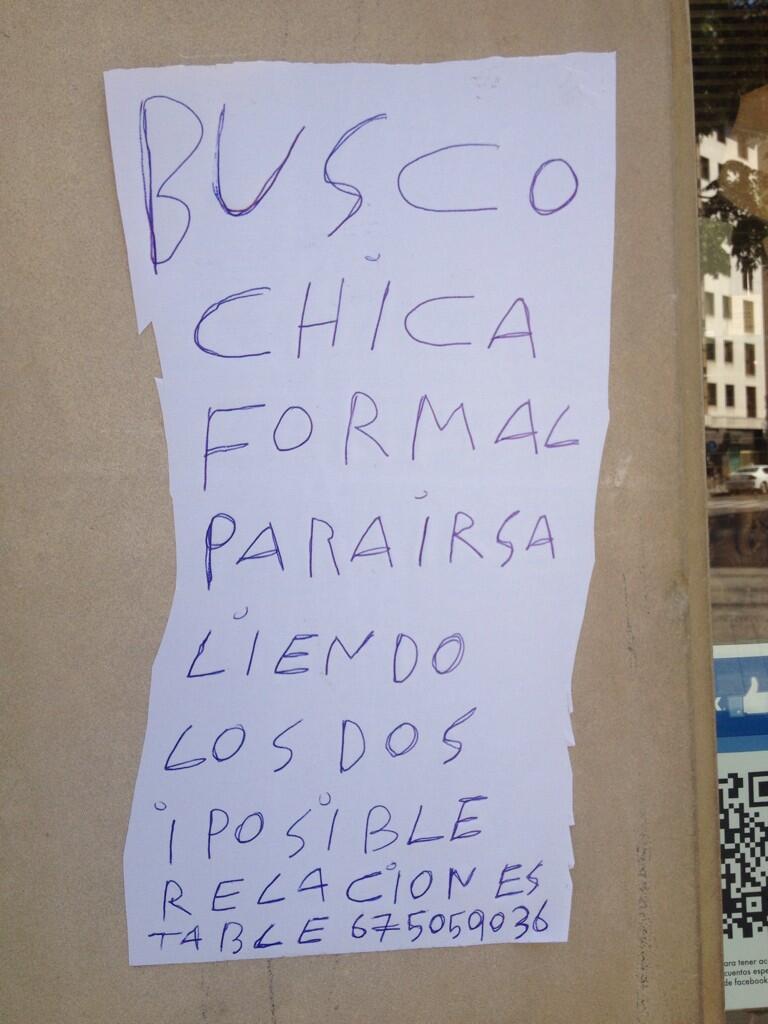 BUSCO
CHICA
FORMAL
PARAIRSA
LIENDO
LOS DOS
IPOSIBLE
RELACIONES
TABLE 675059036
ara tener ac
cuentos espe
de facebook